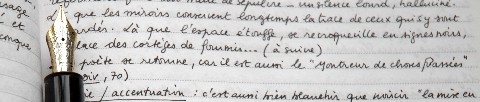 sage
et
conque
de sépulcre – un silence lourd, halluciné.
que les miroirs conservent longtemps la trace de ceux qui s'y sont
Là que l'espace étouffe, se recroqueville en signes noirs,
des cortèges de fourmis... (à suivre)
poète se retourne, car il est aussi le "Montreur de choses Passées"
70)
/ accentuation : c'est aussi bien blanchir que noircir "la mise en